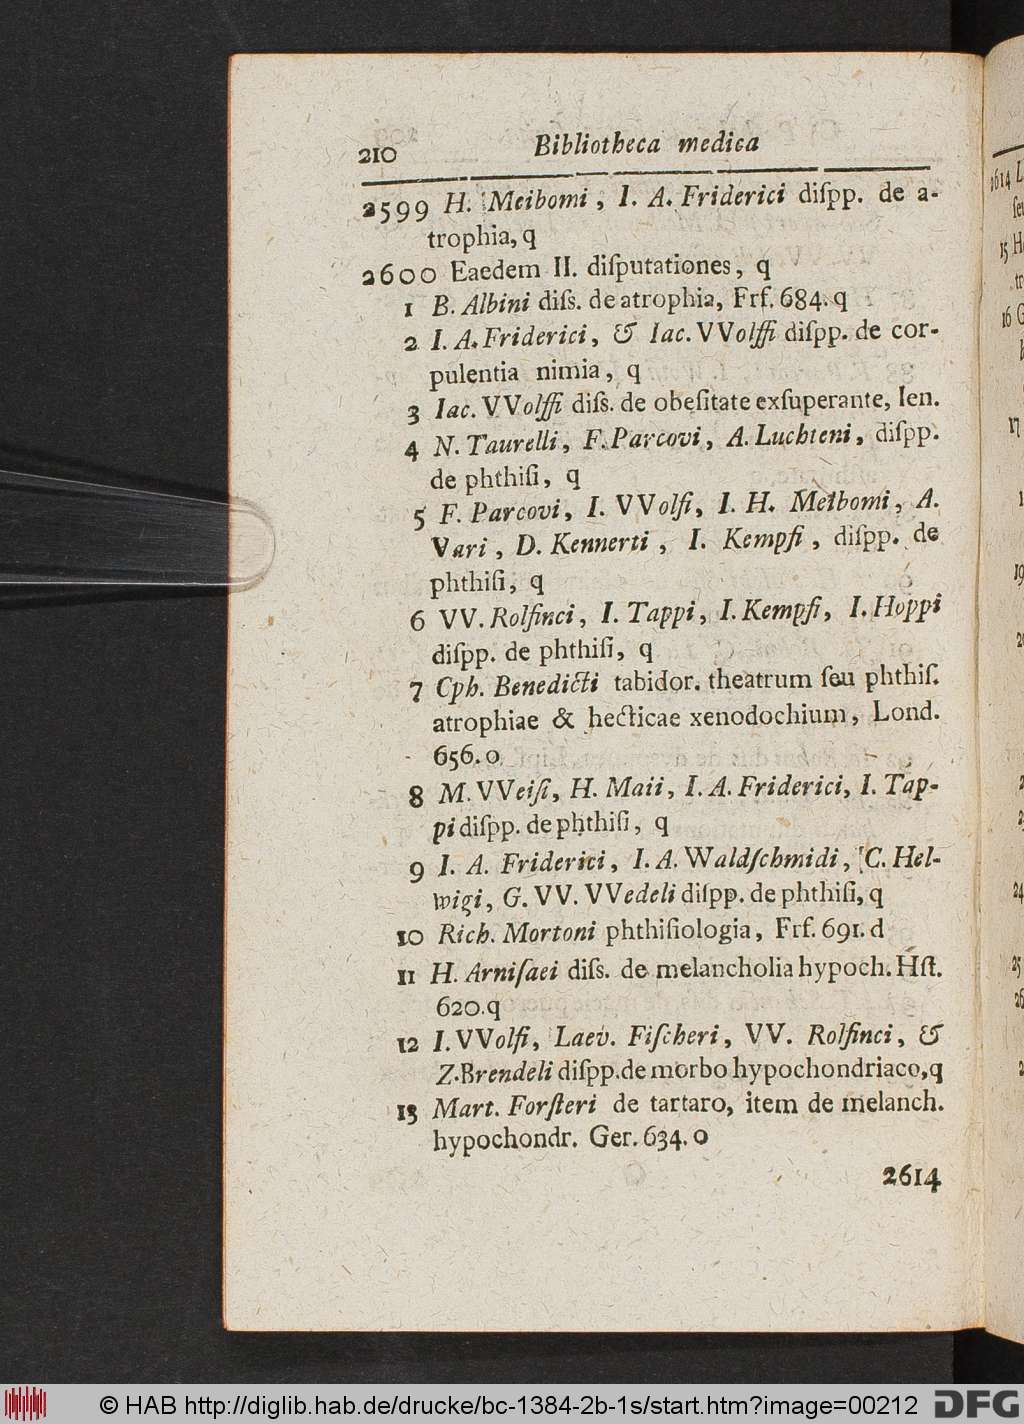 210 Bibliotheca medica
2599 H. Meibomi, I. A. Friderici diſpp. de a-
trophia, q
2600 Eaedem II. diſputationes, q
1 B. Albini diſs. de atrophia, Frf. 684. q
2 I. A. Friderici, & Iac. VVolffi diſpp. de cor-
pulentia nimia, q
3 Iac. VVolffi diſs. de obeſitate exſuperante, Ien.
4 N. Taurelli, F. Parcovi, A. Luchteni, diſpp.
de phthiſi, q
5 F. Parcovi, I. VVolfi, I. H. Meibomi, A.
Vari, D. Kennerti, I. Kempfi, diſpp. de
phthiſi, q
6 VV. Rolfinci, I. Tappi, I. Kempfi, I. Hoppi
diſpp. de phthiſi, q
7 Cph. Benedicti tabidor. theatrum ſeu phthiſ.
atrophiae & hecticae xenodochium, Lond.
656. o
8 M. VVeiſi, H. Maii, I. A. Friderici, I. Tap-
pi diſpp. de phthiſi, q
9 I. A. Friderici, I. A. Waldſchmidi, C. Hel-
wigi, G. VV. VVedeli diſpp. de phthiſi, q
10 Rich. Mortoni phthiſiologia, Frf. 691. d
11 H. Arniſaei diſs. de melancholia hypoch. Hſt.
620. q
12 I. VVolfi, Laev. Fiſcheri, VV. Rolfinci, &
Z. Brendeli diſpp. de morbo hypochondriaco, q
13 Mart. Forſteri de tartaro, item de melanch.
hypochondr. Ger. 634. o
2614
© HAB http://diglib.hab.de/drucke/bc-1384-2b-1s/start.htm?image=00212
DFG